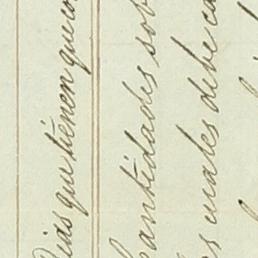 Dias que tienen que co
cantidades sob
cuales debe ca